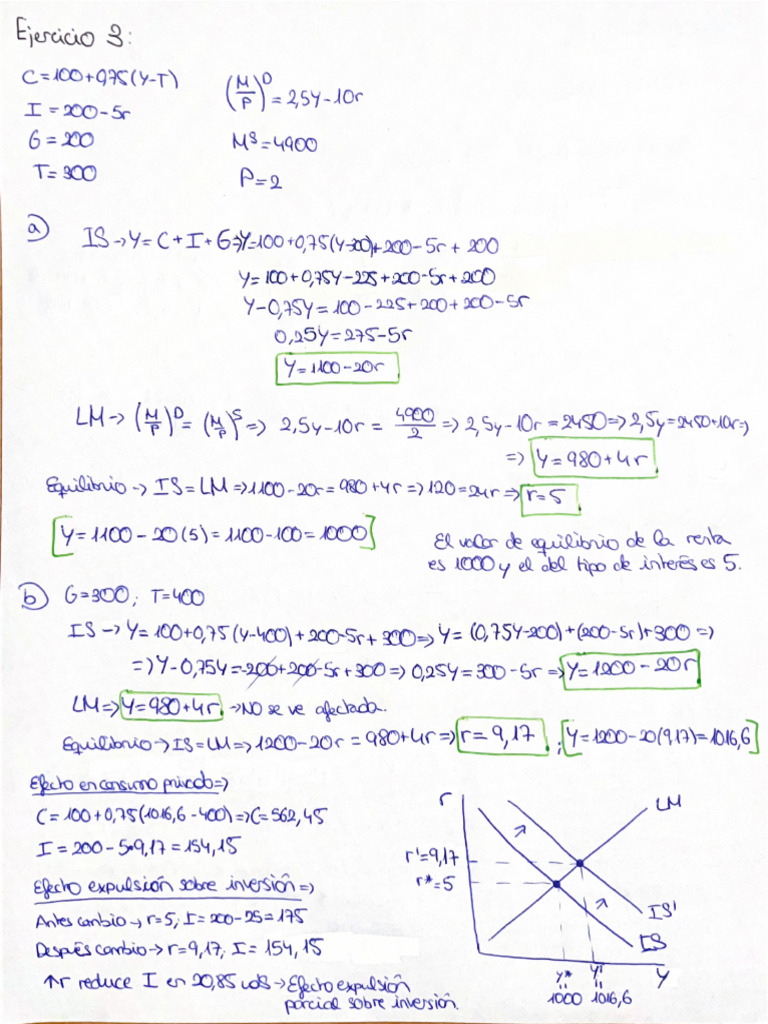 Ejercicio 3:
C=100+0,75(Y-T)
I=200-5r
G=200
T=300
(M/P)^D=2,5Y-10r
M^S=4900
P=2
a) IS→Y=C+I+G⇒Y=100+0,75(Y-300)+200-5r+200
Y=100+0,75Y-225+200-5r+200
Y-0,75Y=100-225+200+200-5r
0,25Y=275-5r
Y=1100-20r
LM→(M/P)^D=(M/P)^S⇒2,5Y-10r=4900/2⇒2,5Y-10r=2450⇒2,5Y=2450+10r⇒
⇒Y=980+4r
Equilibrio→IS=LM⇒1100-20r=980+4r⇒120=24r⇒r=5
Y=1100-20(5)=1100-100=1000
El valor de equilibrio de la renta
es 1000 y el del tipo de interés es 5.
b) G=300; T=400
IS→Y=100+0,75(Y-400)+200-5r+300⇒Y=(0,75Y-200)+(200-5r)+300⇒
⇒Y-0,75Y=-200+200-5r+300⇒0,25Y=300-5r⇒Y=1200-20r
LM⇒Y=980+4r→NO se ve afectada.
Equilibrio→IS=LM⇒1200-20r=980+4r⇒r=9,17; Y=1200-20(9,17)=1016,6
Efecto en consumo privado⇒
C=100+0,75(1016,6-400)⇒C=562,45
I=200-5•9,17=154,15
Efecto expulsión sobre inversión⇒
Antes cambio→r=5; I=200-25=175
Después cambio→r=9,17; I=154,15
↑r reduce I en 20,85 uds→Efecto expulsión
parcial sobre inversión
r
LM
r'=9,17
r*=5
IS'
IS
Y* Y' Y
1000 1016,6